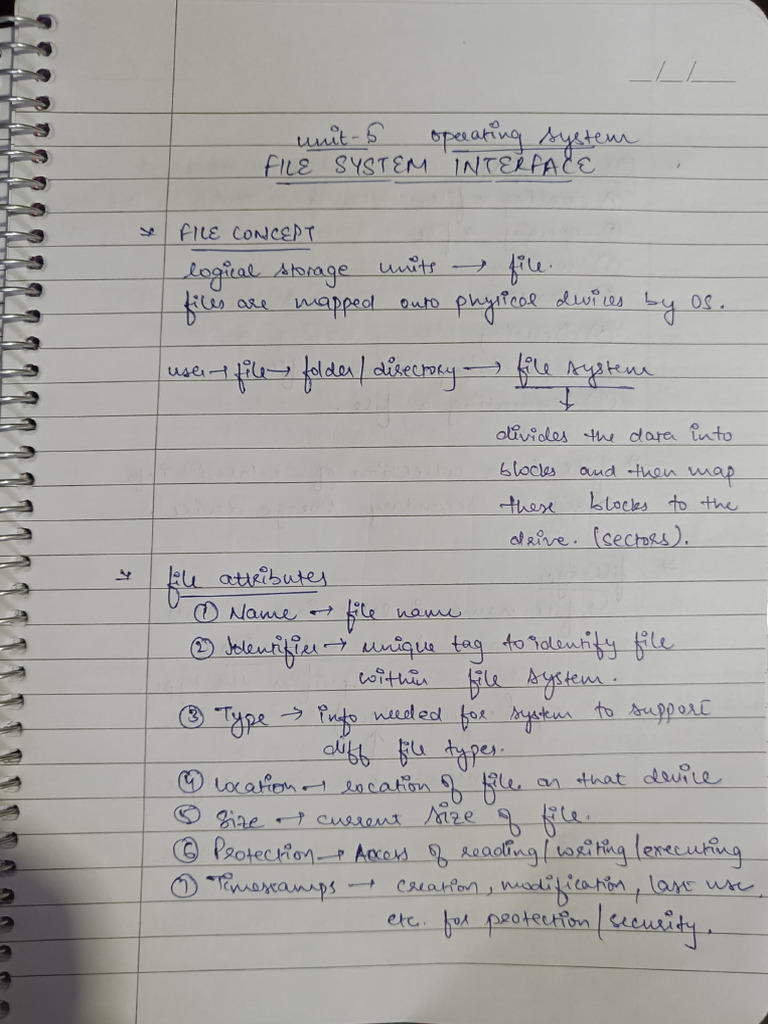 __/__/____
unit-5 operating system
FILE SYSTEM INTERFACE
* FILE CONCEPT
logical storage units → file.
files are mapped onto physical devices by OS.
user → file → folder/directory → file system
↓
divides the data into
blocks and then map
these blocks to the
drive. (sectors).
* file attributes
① Name → file name
② Identifier → unique tag to identify file
within file system.
③ Type → info needed for system to support
diff file types.
④ Location → location of file on that device
⑤ Size → current size of file.
⑥ Protection → Access of reading/writing/executing
⑦ Timestamps → creation, modification, last use
etc. for protection/security.